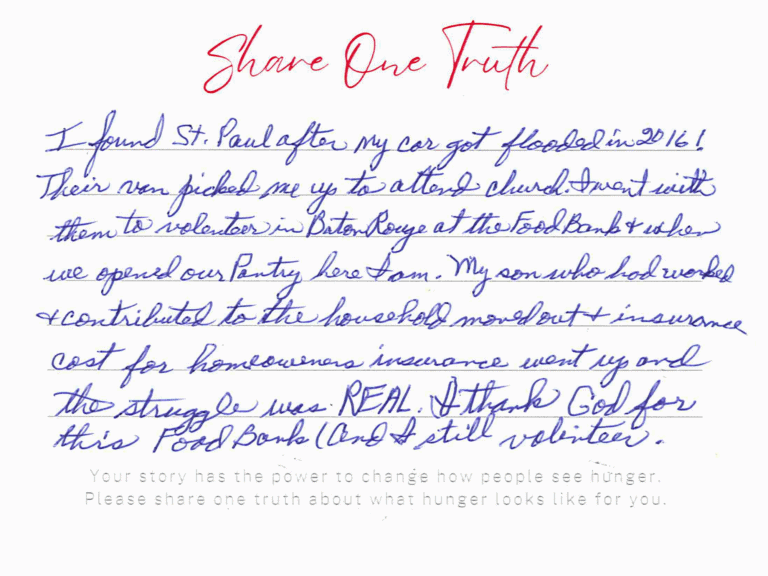 Share One Truth
I found St. Paul after my car got flooded in 2016!
Their van picked me up to attend church. I went with
them to volenteer in Baton Rouge at the Food Bank & when
we opened our Pantry here I am. My son who had worked
& contributed to the household moved out & insurance
cost for homeowners insurance went up and
the struggle was REAL. I thank God for
this Food Bank (And I still volenteer.
Your story has the power to change how people see hunger.
Please share one truth about what hunger looks like for you.